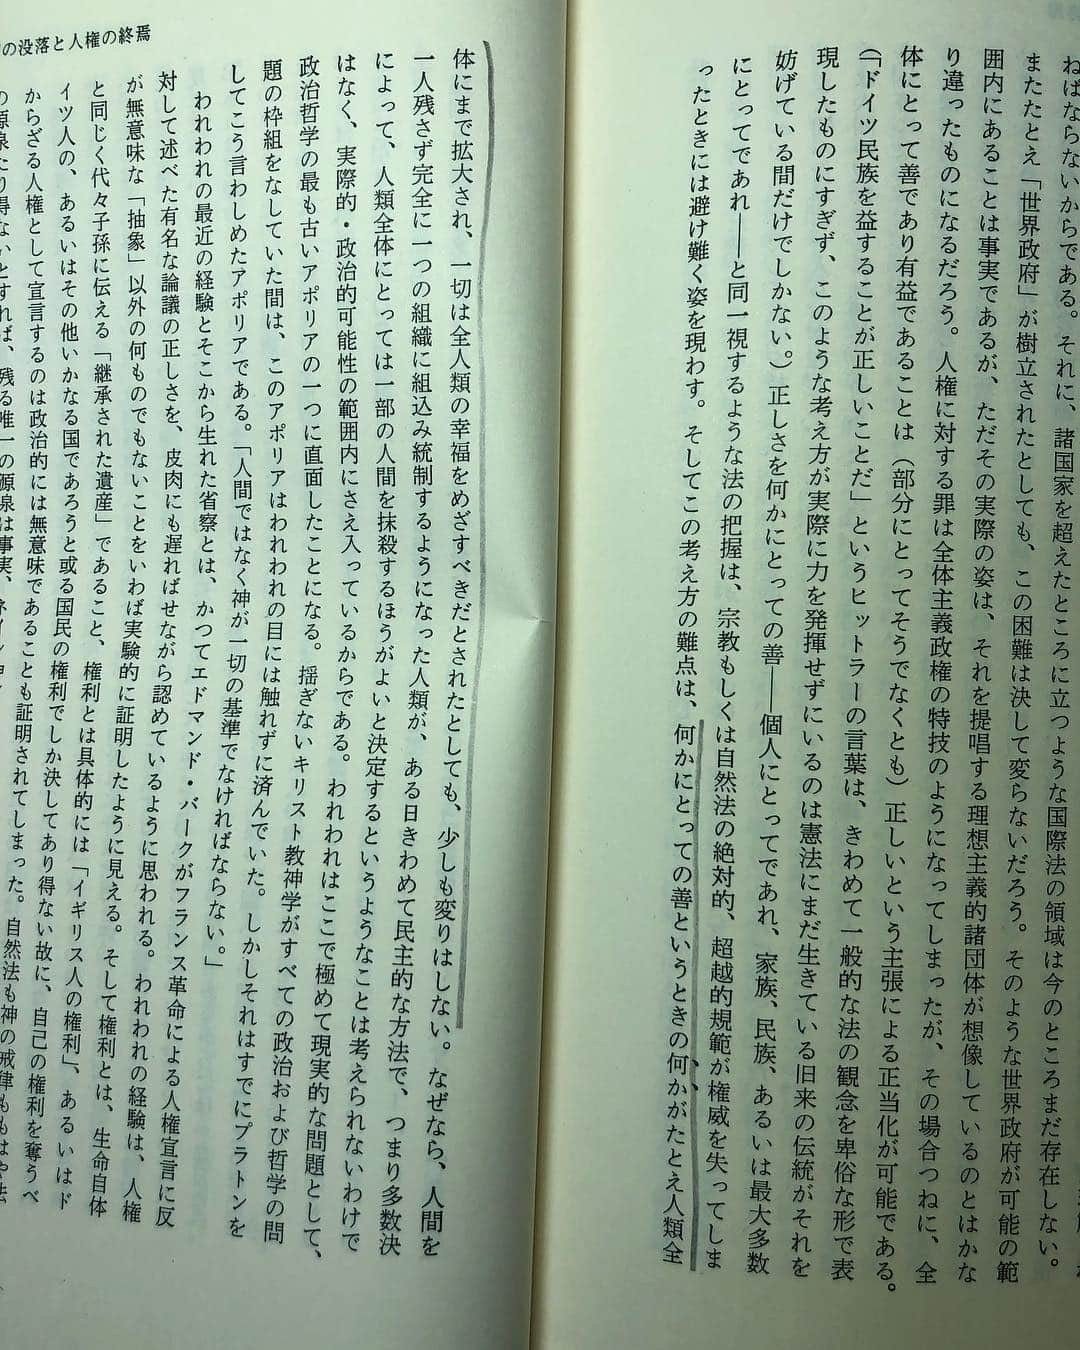 ねばならないからである。それに、諸国家を超えたところに立つような国際法の領域は今のところまだ存在しない。
またたとえ「世界政府」が樹立されたとしても、この困難は決して変らないだろう。そのような世界政府が可能の範
囲内にあることは事実であるが、ただその実際の姿は、それを提唱する理想主義的諸団体が想像しているのとはかな
り違ったものになるだろう。人権に対する罪は全体主義政権の特技のようになってしまったが、その場合つねに、全
体にとって善であり有益であることは（部分にとってそうでなくとも）正しいという主張による正当化が可能である。
（「ドイツ民族を益することが正しいことだ」というヒットラーの言葉は、きわめて一般的な法の観念を卑俗な形で表
現したものにすぎず、このような考え方が実際に力を発揮せずにいるのは憲法にまだ生きている旧来の伝統がそれを
妨げている間だけでしかない。）正しさを何かにとっての善――個人にとってであれ、家族、民族、あるいは最大多数
にとってであれ――と同一視するような法の把握は、宗教もしくは自然法の絶対的、超越的規範が権威を失ってしま
ったときには避け難く姿を現わす。そしてこの考え方の難点は、何かにとっての善というときの何かがたとえ人類全
の没落と人権の終焉
体にまで拡大され、一切は全人類の幸福をめざすべきだとされたとしても、少しも変りはしない。なぜなら、人間を
一人残さず完全に一つの組織に組込み統制するようになった人類が、ある日きわめて民主的な方法で、つまり多数決
によって、人類全体にとっては一部の人間を抹殺するほうがよいと決定するというようなことは考えられないわけで
はなく、実際的・政治的可能性の範囲内にさえ入っているからである。われわれはここで極めて現実的な問題として、
政治哲学の最も古いアポリアの一つに直面したことになる。揺ぎないキリスト教神学がすべての政治および哲学の問
題の枠組をなしていた間は、このアポリアはわれわれの目には触れずに済んでいた。しかしそれはすでにプラトンを
してこう言わしめたアポリアである。「人間ではなく神が一切の基準でなければならない。」
われわれの最近の経験とそこから生れた省察とは、かつてエドマンド・バークがフランス革命による人権宣言に反
対して述べた有名な論議の正しさを、皮肉にも遅ればせながら認めているように思われる。われわれの経験は、人権
が無意味な「抽象」以外の何ものでもないことをいわば実験的に証明したように見える。そして権利とは、生命自体
と同じく代々子孫に伝える「継承された遺産」であること、権利とは具体的には「イギリス人の権利」、あるいはド
イツ人の、あるいはその他いかなる国であろうと或る国民の権利でしか決してあり得ない故に、自己の権利を奪うべ
からざる人権として宣言するのは政治的には無意味であることも証明されてしまった。自然法も神の戒律ももはや法
の源泉たり得ないとすれば、残る唯一の源泉は事実、ネイション